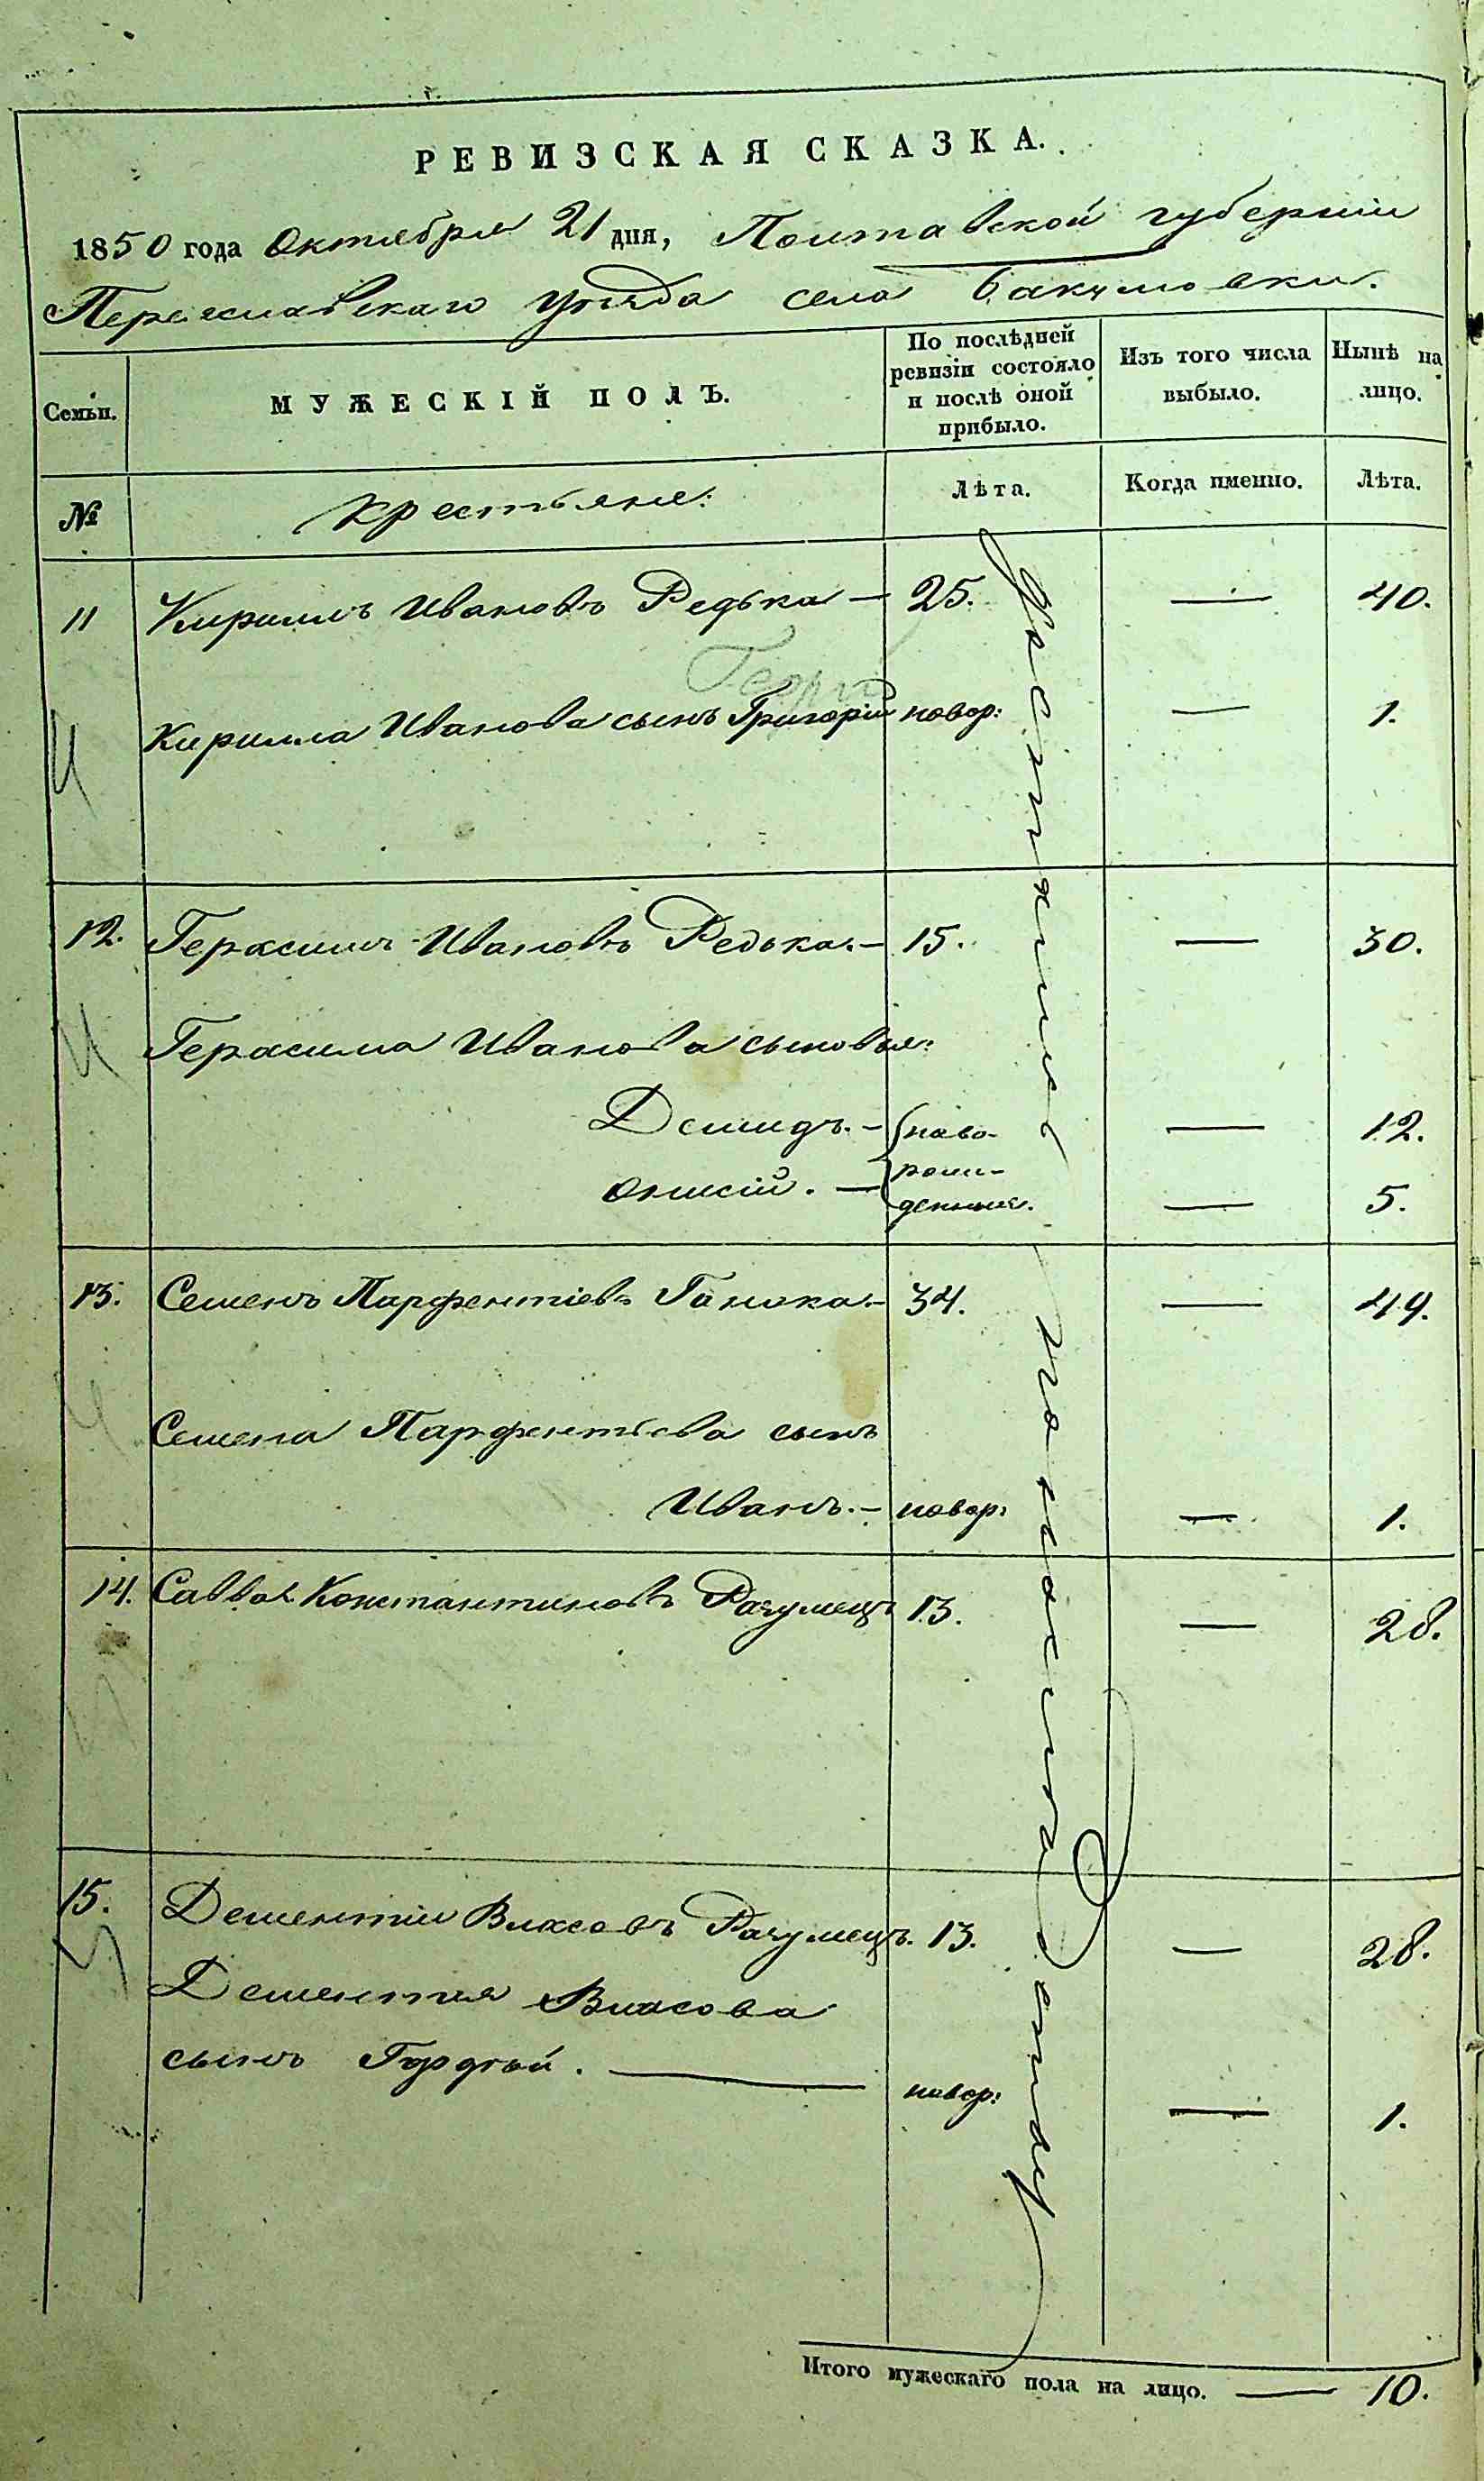 РЕВИЗСКАЯ СКАЗКА.
1850 года Октября 21 дня, Полтавской губерніи
Переяславскаго уѣзда села Бакумовки.
Семьи.
МУЖЕСКІЙ ПОЛЪ.
По послѣдней ревизіи состояло и послѣ оной прибыло.
Изъ того числа выбыло.
Нынѣ на лицо.
№
крестьяне:
Лѣта.
Когда именно.
Лѣта.
11 Кириллъ Ивановъ Редька — 25. — 40.
Георгій
Кирилла Иванова сынъ Григорій новор: — 1.
12. Герасимъ Ивановъ Редька. — 15. — 30.
Герасима Иванова сыновья:
Демидъ. — ново- — 12.
Онисій. — рож-
денные. — 5.
13. Семенъ Парфентіевъ Ганжа. — 34. — 49.
Семена Парфентьева сынъ
Иванъ. — новор: — 1.
14. Савва Константиновъ Разумецъ 13. — 28.
15. Дементій Власовъ Разумецъ. 13. — 28.
Дементія Власова
сынъ Гордѣй. — новор: — 1.
Итого мужескаго пола на лицо. — 10.